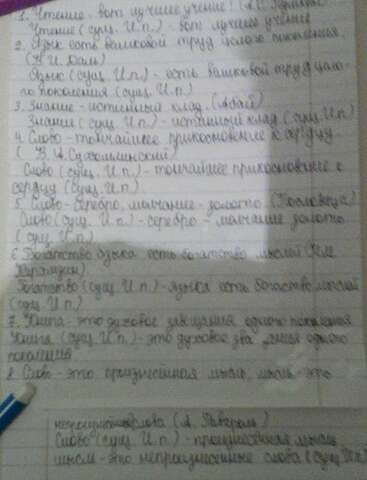 1. Чтение - вот лучшее учение! (А.С. Пушкин)
Чтение (сущ. И.п.) - вот лучшее учение
2. Язык есть вековой труд целого поколения.
(В.И. Даль)
Язык (сущ. И.п.) - есть вековой труд цело-
го поколения (сущ. И.п.)
3. Знание - истинный клад. (Абай)
Знание (сущ. И.п.) - истинный клад (сущ. И.п)
4. Слово - тончайшее прикосновение к сердцу
( В.А. Сухомлинский)
Слово (сущ. И.п.) - тончайшее прикосновение к
сердцу (сущ. И.п.)
5. Слово - серебро, молчание - золото. (Пословица)
Слово (сущ. И.п.) - серебро - молчание золото
(сущ. И.п.)
6 Богатство языка есть богатство мыслей
Карамзин)
Богатство (сущ. И.п.) - языка есть богатство мыслей
(сущ. И.п.)
7. Книга - это духовое завещание одного поколения
Книга (сущ. И.п.) - это духовое одного
поколения
8. Слово - это произнесённая мысль, мысль - это
слова (А.
Слово (сущ. И.п.) - произнесённая мысль
мысль - это непроизнесенные слова (сущ. И.п.)